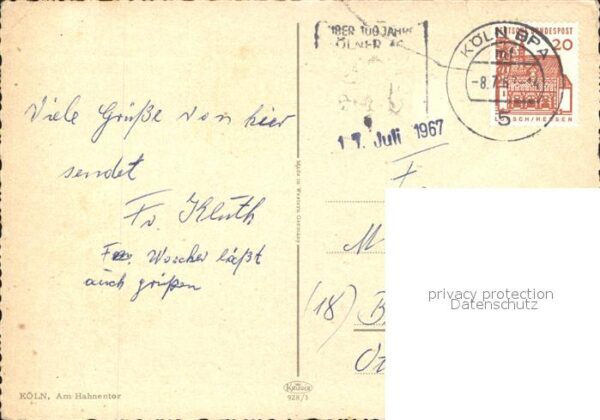 Viele Grüße von hier
sendet
Fr. Kluth
Frau Woscher läßt
auch grüßen
KÖLN, Am Hahnentor
Made in Western Germany
Krüger
928/1
ÜBER 100 JAHRE
KÖLNER
17. Juli 1967
KÖLN BPA
-8.7.
5
DEUTSCHE BUNDESPOST
20
LORSCH/HESSEN
F
M
(18) B
privacy protection
Datenschutz